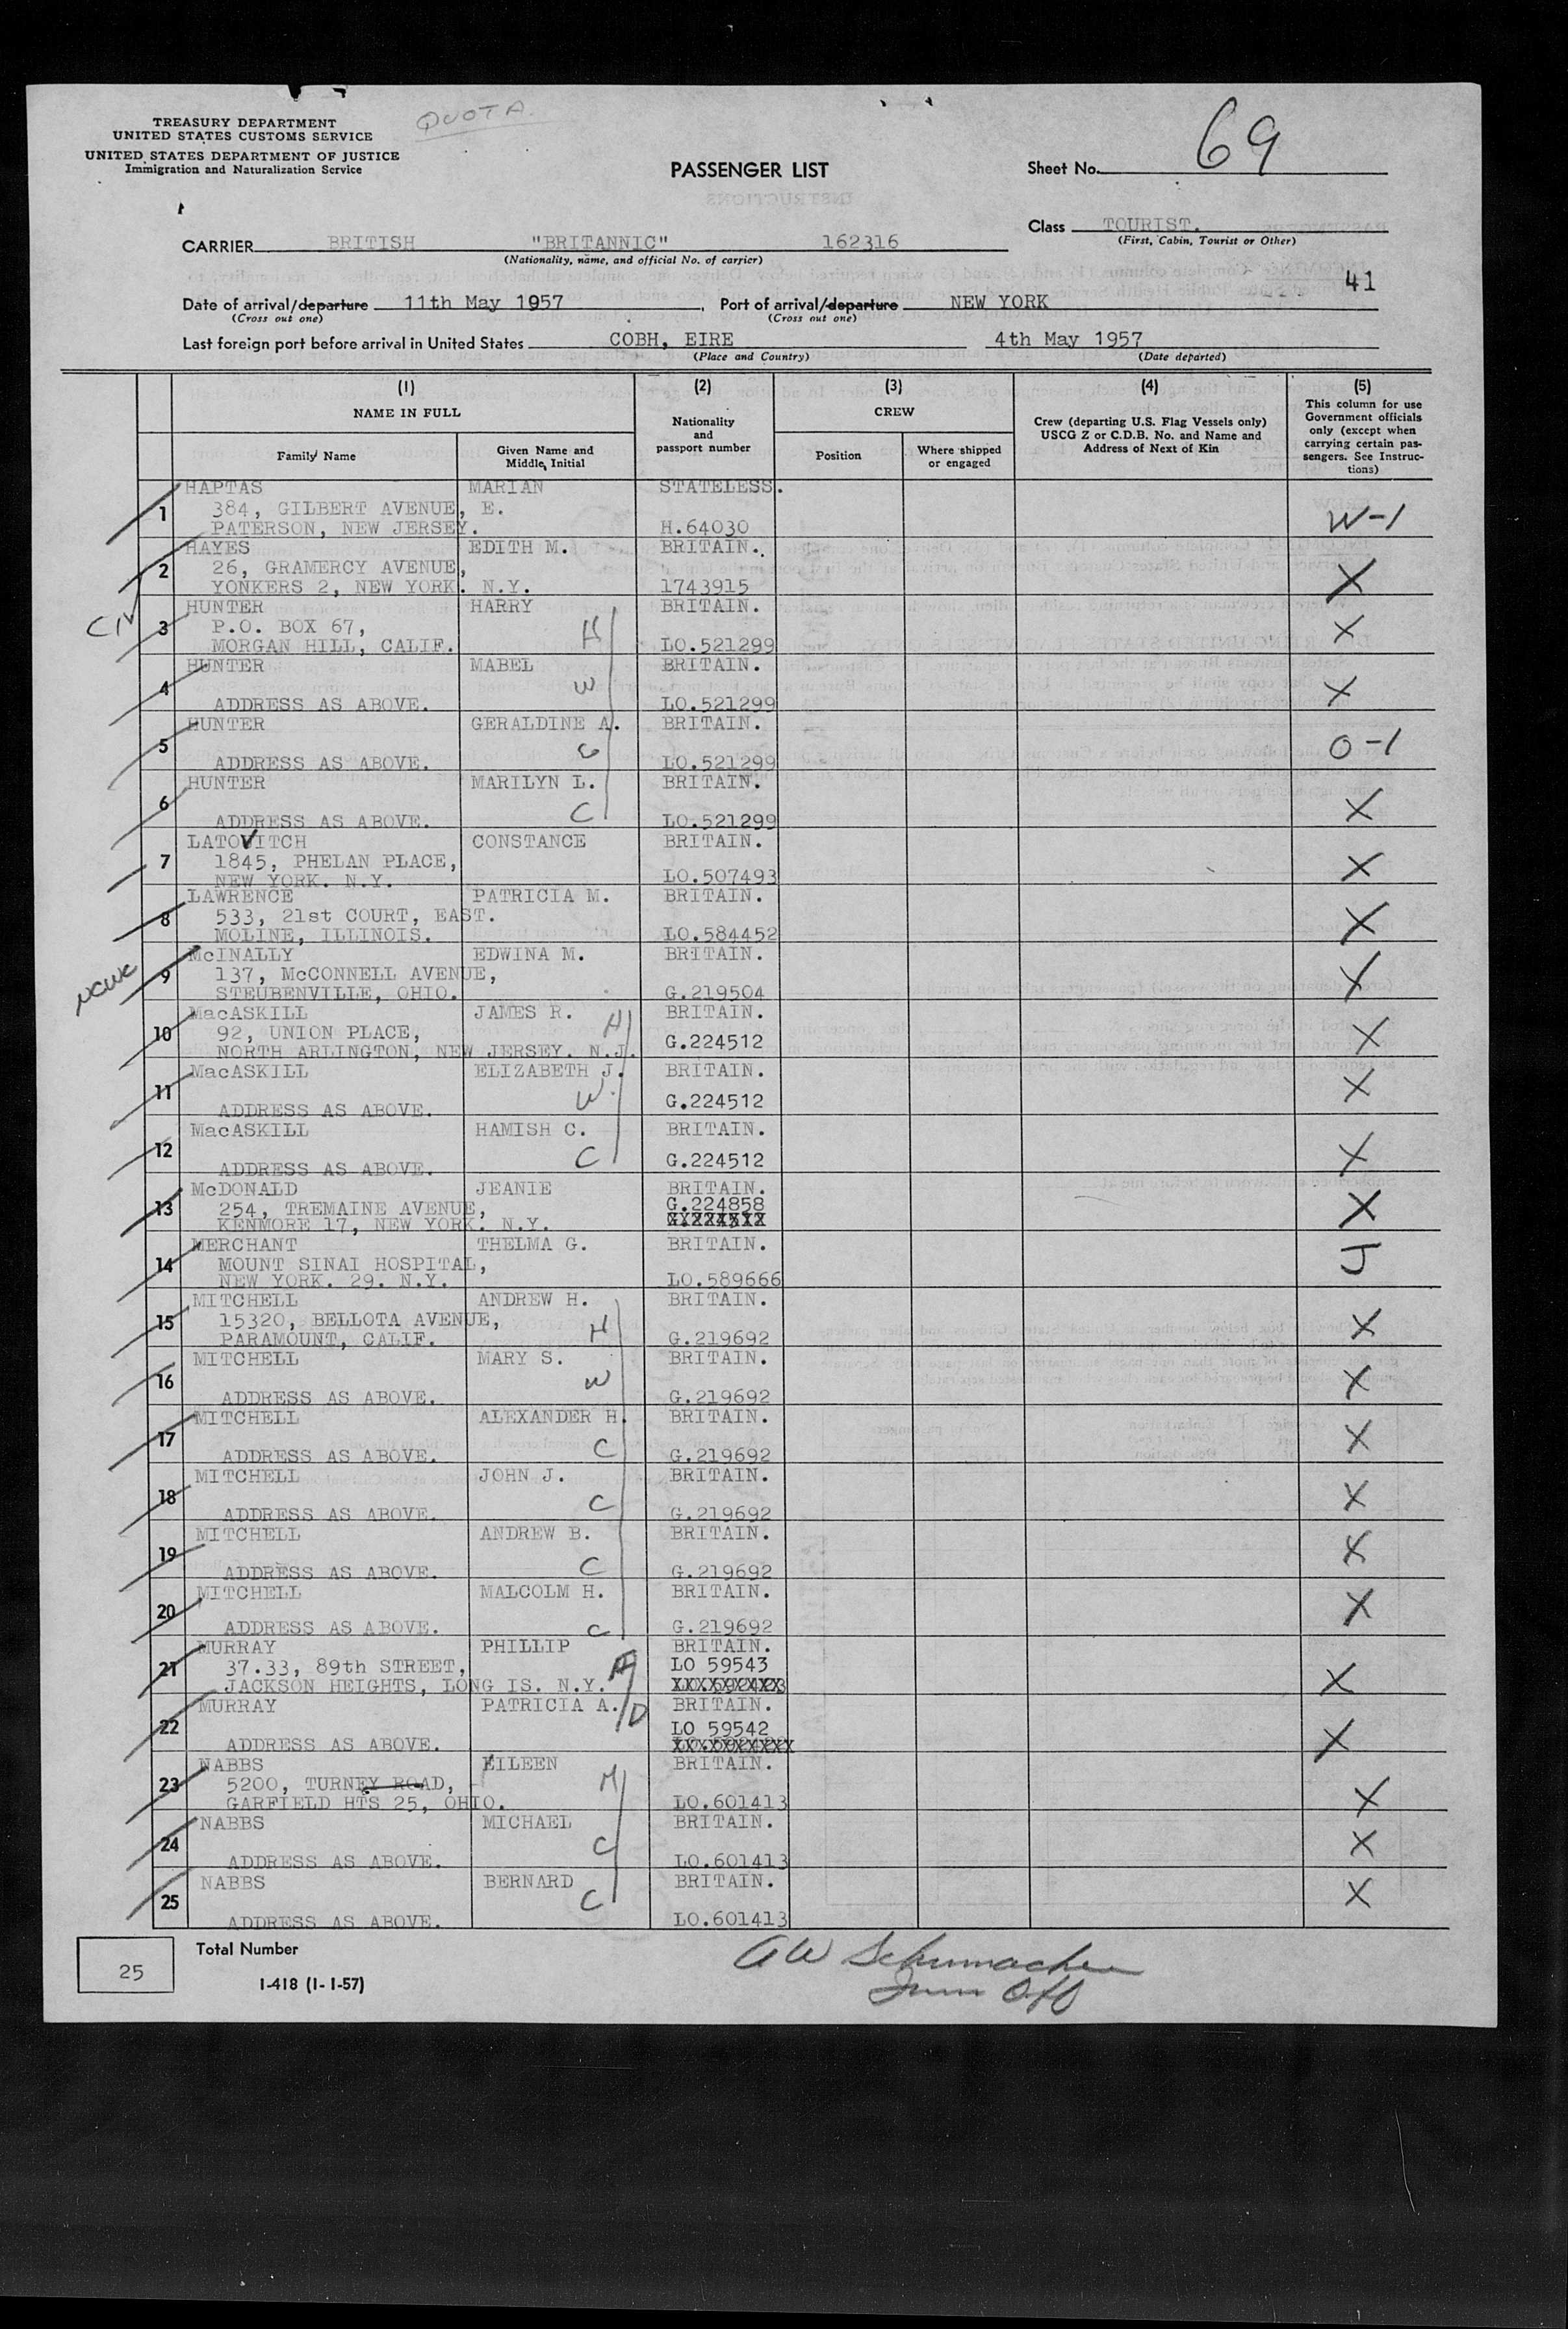 QUOTA.
TREASURY DEPARTMENT
UNITED STATES CUSTOMS SERVICE
UNITED STATES DEPARTMENT OF JUSTICE
Immigration and Naturalization Service
PASSENGER LIST
Sheet No. 69
Class TOURIST.
(First, Cabin, Tourist or Other)
CARRIER BRITISH "BRITANNIC" 162316
(Nationality, name, and official No. of carrier)
41
Date of arrival/departure 11th May 1957, Port of arrival/departure NEW YORK
(Cross out one) (Cross out one)
Last foreign port before arrival in United States COBH, EIRE 4th May 1957
(Place and Country) (Date departed)
(1) (2) (3) (4) (5)
NAME IN FULL
Family Name
Given Name and Middle Initial
Nationality and passport number
CREW
Position
Where shipped or engaged
Crew (departing U.S. Flag Vessels only) USCG Z or C.D.B. No. and Name and Address of Next of Kin
This column for use Government officials only (except when carrying certain passengers. See Instructions)
1 HAPTAS MARIAN STATELESS.
384, GILBERT AVENUE, E.
PATERSON, NEW JERSEY. H.64030 W-1
2 HAYES EDITH M. BRITAIN.
26, GRAMERCY AVENUE,
YONKERS 2, NEW YORK. N.Y. 1743915 X
CIV
3 HUNTER HARRY BRITAIN.
P.O. BOX 67,
MORGAN HILL, CALIF. H LO.521299 X
4 HUNTER MABEL BRITAIN.
W
ADDRESS AS ABOVE. LO.521299 X
5 HUNTER GERALDINE A. BRITAIN.
C
ADDRESS AS ABOVE. LO.521299 O-1
6 HUNTER MARILYN L. BRITAIN.
C
ADDRESS AS ABOVE. LO.521299 X
7 LATOVITCH CONSTANCE BRITAIN.
1845, PHELAN PLACE,
NEW YORK. N.Y. LO.507493 X
8 LAWRENCE PATRICIA M. BRITAIN.
533, 21st COURT, EAST.
MOLINE, ILLINOIS. LO.584452 X
9 McINALLY EDWINA M. BRITAIN.
137, McCONNELL AVENUE,
STEUBENVILLE, OHIO. G.219504 X
10 MacASKILL JAMES R. BRITAIN.
92, UNION PLACE, H G.224512 X
NORTH ARLINGTON, NEW JERSEY. N.J.
11 MacASKILL ELIZABETH J. BRITAIN.
W G.224512 X
ADDRESS AS ABOVE.
12 MacASKILL HAMISH C. BRITAIN.
C G.224512 X
ADDRESS AS ABOVE.
13 McDONALD JEANIE BRITAIN.
254, TREMAINE AVENUE, G.224858 X
KENMORE 17, NEW YORK. N.Y.
14 MERCHANT THELMA G. BRITAIN.
MOUNT SINAI HOSPITAL, J
NEW YORK. 29. N.Y. LO.589666
15 MITCHELL ANDREW H. BRITAIN.
15320, BELLOTA AVENUE,
PARAMOUNT, CALIF. H G.219692 X
16 MITCHELL MARY S. BRITAIN.
W
ADDRESS AS ABOVE. G.219692 X
17 MITCHELL ALEXANDER H. BRITAIN.
C
ADDRESS AS ABOVE. G.219692 X
18 MITCHELL JOHN J. BRITAIN.
C
ADDRESS AS ABOVE. G.219692 X
19 MITCHELL ANDREW B. BRITAIN.
C
ADDRESS AS ABOVE. G.219692 X
20 MITCHELL MALCOLM H. BRITAIN.
ADDRESS AS ABOVE. C G.219692 X
21 MURRAY PHILLIP BRITAIN.
37.33, 89th STREET, LO 59543
JACKSON HEIGHTS, LONG IS. N.Y. X
22 MURRAY PATRICIA A. D BRITAIN.
LO 59542
ADDRESS AS ABOVE. XXXXXXXXXX X
23 NABBS EILEEN BRITAIN.
5200, TURNEY ROAD, M
GARFIELD HTS 25, OHIO. LO.601413 X
24 NABBS MICHAEL BRITAIN.
C
ADDRESS AS ABOVE. LO.601413 X
25 NABBS BERNARD BRITAIN.
C
ADDRESS AS ABOVE. LO.601413 X
25 Total Number
I-418 (1-1-57)
A W Schumacher
Imm Off